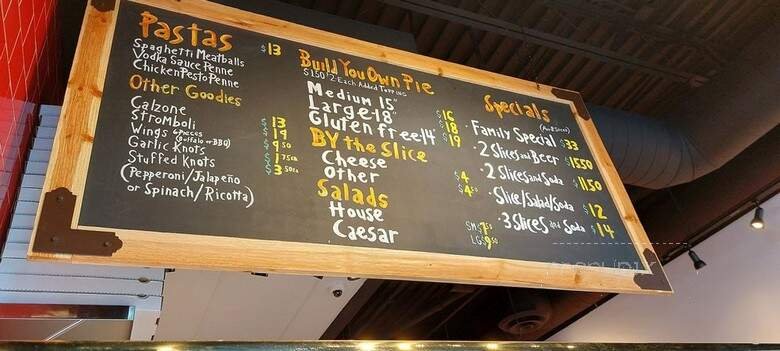 Pastas $13
Spaghetti Meatballs
Vodka Sauce Penne
Chicken Pesto Penne
Other Goodies
Calzone $13
Stromboli $19
Wings 6 Pieces (Buffalo or BBQ) $9.50
Garlic Knots $1.75 ea
Stuffed Knots $3.50 ea
(Pepperoni/Jalapeño
or Spinach/Ricotta)
Build You Own Pie
$1.50 * 2 Each Added Topping
Medium 15" $16
Large-18" $18
Gluten free 14 $19
By the Slice
Cheese $4
Other $4.50
Salads
House SM $7.50
Caesar LG $9.50
Specials
Family Special $33
2 Slices and Beer $15.50
2 Slices and Soda $11.50
Slice/Salad/Soda $12
3 Slices and Soda $14
menupix